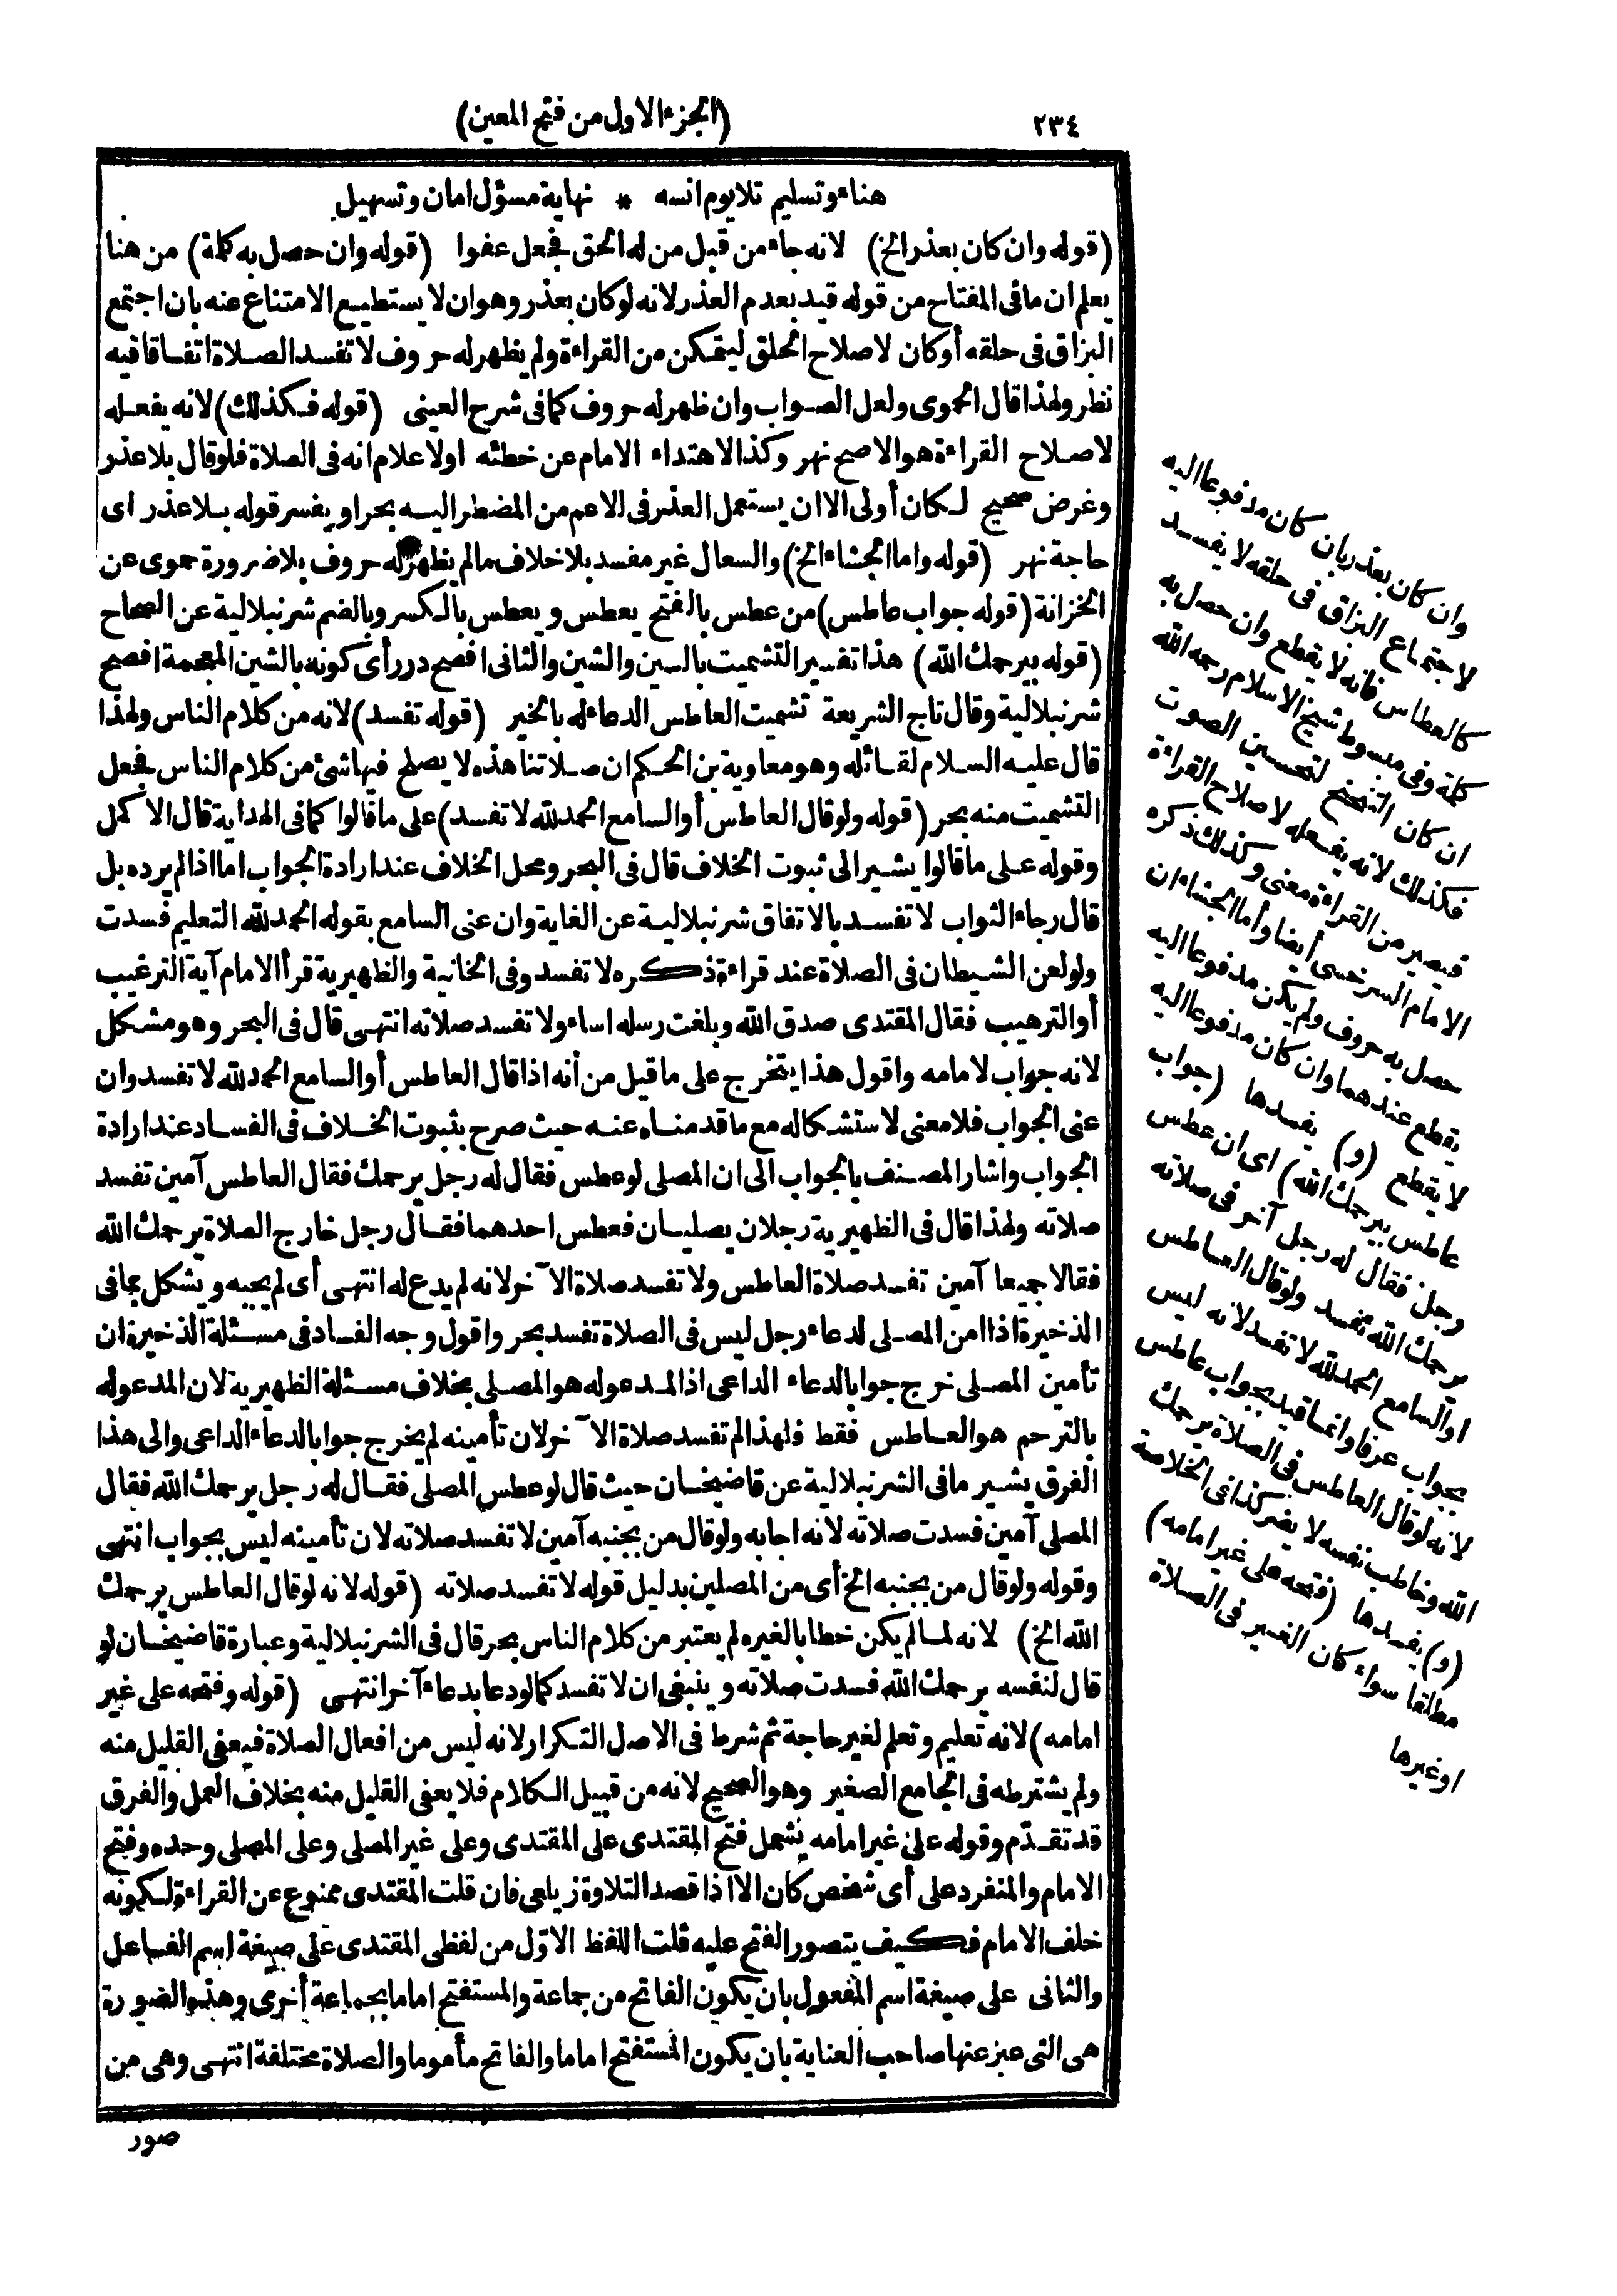 ٢٣٤
(الجزء الاول من فتح المعين)
هناء وتسليم تلايوم انسه * نهاية مسؤل امان وتسهيل
(قوله وان كان بعذر الخ) لانه جاء من قبل من له الحق فجعل عفوا (قوله وان حصل به كلمة) من هنا
يعلم ان ما فى المفتاح من قوله قيد بعدم العذر لانه لو كان بعذر وهو ان لا يستطيع الامتناع عنه بان اجتمع
البزاق فى حلقه أو كان لاصلاح الحلق ليتمكن من القراءة ولم يظهر له حروف لا تفسد الصلاة اتفاقا فيه
نظر ولهذا قال الحموى ولعل الصواب وان ظهر له حروف كما فى شرح العينى (قوله فكذلك) لانه يفعله
لاصلاح القراءة هو الاصح نهر وكذا لاهتداء الامام عن خطئه او لاعلام انه فى الصلاة فلو قال بلا عذر
وغرض صحيح لكان أولى الا ان يستعمل العذر فى الاعم من المضطر اليه بحر او يفسر قوله بلا عذر اى
حاجة نهر (قوله واما الجشاء الخ) والسعال غير مفسد بلا خلاف ما لم يظهر له حروف بلا ضرورة حموى عن
الخزانة (قوله جواب عاطس) من عطس بالفتح يعطس ويعطس بالكسر وبالضم شرنبلالية عن الصحاح
(قوله بيرحمك الله) هذا تفسير التشميت بالسين والشين والثانى افصح درر أى كونه بالشين المعجمة افصح
شرنبلالية وقال تاج الشريعة تشميت العاطس الدعاء له بالخير (قوله تفسد) لانه من كلام الناس ولهذا
قال عليه السلام لقائله وهو معاوية بن الحكم ان صلاتنا هذه لا يصلح فيها شئ من كلام الناس فجعل
التشميت منه بحر (قوله ولو قال العاطس أو السامع الحمد لله لا تفسد) على ما قالوا كما فى الهداية قال الاكمل
وقوله على ما قالوا يشير الى ثبوت الخلاف قال فى البحر ومحل الخلاف عند ارادة الجواب اما اذا لم يرده بل
قال رجاء الثواب لا تفسد بالاتفاق شرنبلالية عن الغاية وان عنى السامع بقوله الحمد لله التعليم فسدت
ولو لعن الشيطان فى الصلاة عند قراءة ذكره لا تفسد وفى الخانية والظهيرية قرأ الامام آية الترغيب
أو الترهيب فقال المقتدى صدق الله وبلغت رسله اساء ولا تفسد صلاته انتهى قال فى البحر وهو مشكل
لانه جواب لامامه واقول هذا يتخرج على ما قيل من أنه اذا قال العاطس أو السامع الحمد لله لا تفسد وان
عنى الجواب فلا معنى لاستشكاله مع ما قدمناه عنه حيث صرح بثبوت الخلاف فى الفساد عند ارادة
الجواب واشار المصنف بالجواب الى ان المصلى لو عطس فقال له رجل يرحمك فقال العاطس آمين تفسد
صلاته ولهذا قال فى الظهيرية رجلان يصليان فعطس احدهما فقال رجل خارج الصلاة يرحمك الله
فقالا جميعا آمين تفسد صلاة العاطس ولا تفسد صلاة الآخر لانه لم يدع له انتهى أى لم يجبه ويشكل بما فى
الذخيرة اذا امن المصلى لدعاء رجل ليس فى الصلاة تفسد بحر واقول وجه الفساد فى مسئلة الذخيرة ان
تأمين المصلى خرج جوابا لدعاء الداعى اذ المدعو له هو المصلى بخلاف مسئلة الظهيرية لان المدعو له
بالترحم هو العاطس فقط فلهذا لم تفسد صلاة الآخر لان تأمينه لم يخرج جوابا لدعاء الداعى والى هذا
الفرق يشير ما فى الشرنبلالية عن قاضيخان حيث قال لو عطس المصلى فقال له رجل يرحمك الله فقال
المصلى آمين فسدت صلاته لانه اجابه ولو قال من بجنبه آمين لا تفسد صلاته لان تأمينه ليس بجواب انتهى
وقوله ولو قال من بجنبه الخ أى من المصلين بدليل قوله لا تفسد صلاته (قوله لانه لو قال العاطس يرحمك
الله الخ) لانه لما لم يكن خطابا لغيره لم يعتبر من كلام الناس بحر قال فى الشرنبلالية وعبارة قاضيخان لو
قال لنفسه يرحمك الله فسدت صلاته وينبغى ان لا تفسد كما لو دعا بدعاء آخر انتهى (قوله وفتحه على غير
امامه) لانه تعليم وتعلم لغير حاجة ثم شرط فى الاصل التكرار لانه ليس من افعال الصلاة فيعفى القليل منه
ولم يشترطه فى الجامع الصغير وهو الصحيح لانه من قبيل الكلام فلا يعفى القليل منه بخلاف العمل والفرق
قد تقدّم وقوله على غير امامه يشمل فتح المقتدى على المقتدى وعلى غير المصلى وعلى المصلى وحده وفتح
الامام والمنفرد على أى شخص كان الا اذا قصد التلاوة زيلعى فان قلت المقتدى ممنوع عن القراءة لكونه
خلف الامام فكيف يتصور الفتح عليه قلت اللفظ الاوّل من لفظى المقتدى على صيغة اسم الفاعل
والثانى على صيغة اسم المفعول بان يكون الفاتح من جماعة والمستفتح اماما بجماعة أخرى وهذه الصورة
هى التى عبر عنها صاحب العناية بان يكون المستفتح اماما والفاتح مأموما والصلاة مختلفة انتهى وهى من
صور
وان كان بعذر بان كان مدفوعا اليه
لاجتماع البزاق فى حلقه لا يفسد
كالعطاس فانه لا يقطع وان حصل به
كلمة وفى مبسوط شيخ الاسلام رحمه الله
ان كان التنحنح لتحسين الصوت
فكذلك لانه يفعله لاصلاح القراءة
فيصير من القراءة معنى وكذلك ذكره
الامام السرخسى أيضا وأما الجشاء ان
حصل به حروف ولم يكن مدفوعا اليه
يقطع عندهما وان كان مدفوعا اليه
لا يقطع (و) يفسدها (جواب
عاطس بيرحمك الله) اى ان عطس
رجل فقال له رجل آخر فى صلاته
يرحمك الله تفسد ولو قال العاطس
او السامع الحمد لله لا تفسد لانه ليس
بجواب عرفا وانما قيد بجواب عاطس
لانه لو قال العاطس فى الصلاة يرحمك
الله وخاطب نفسه لا يضر كذا فى الخلاصة
(و) يفسدها (فتحه على غير امامه)
مطلقا سواء كان الغير فى الصلاة
او غيرها